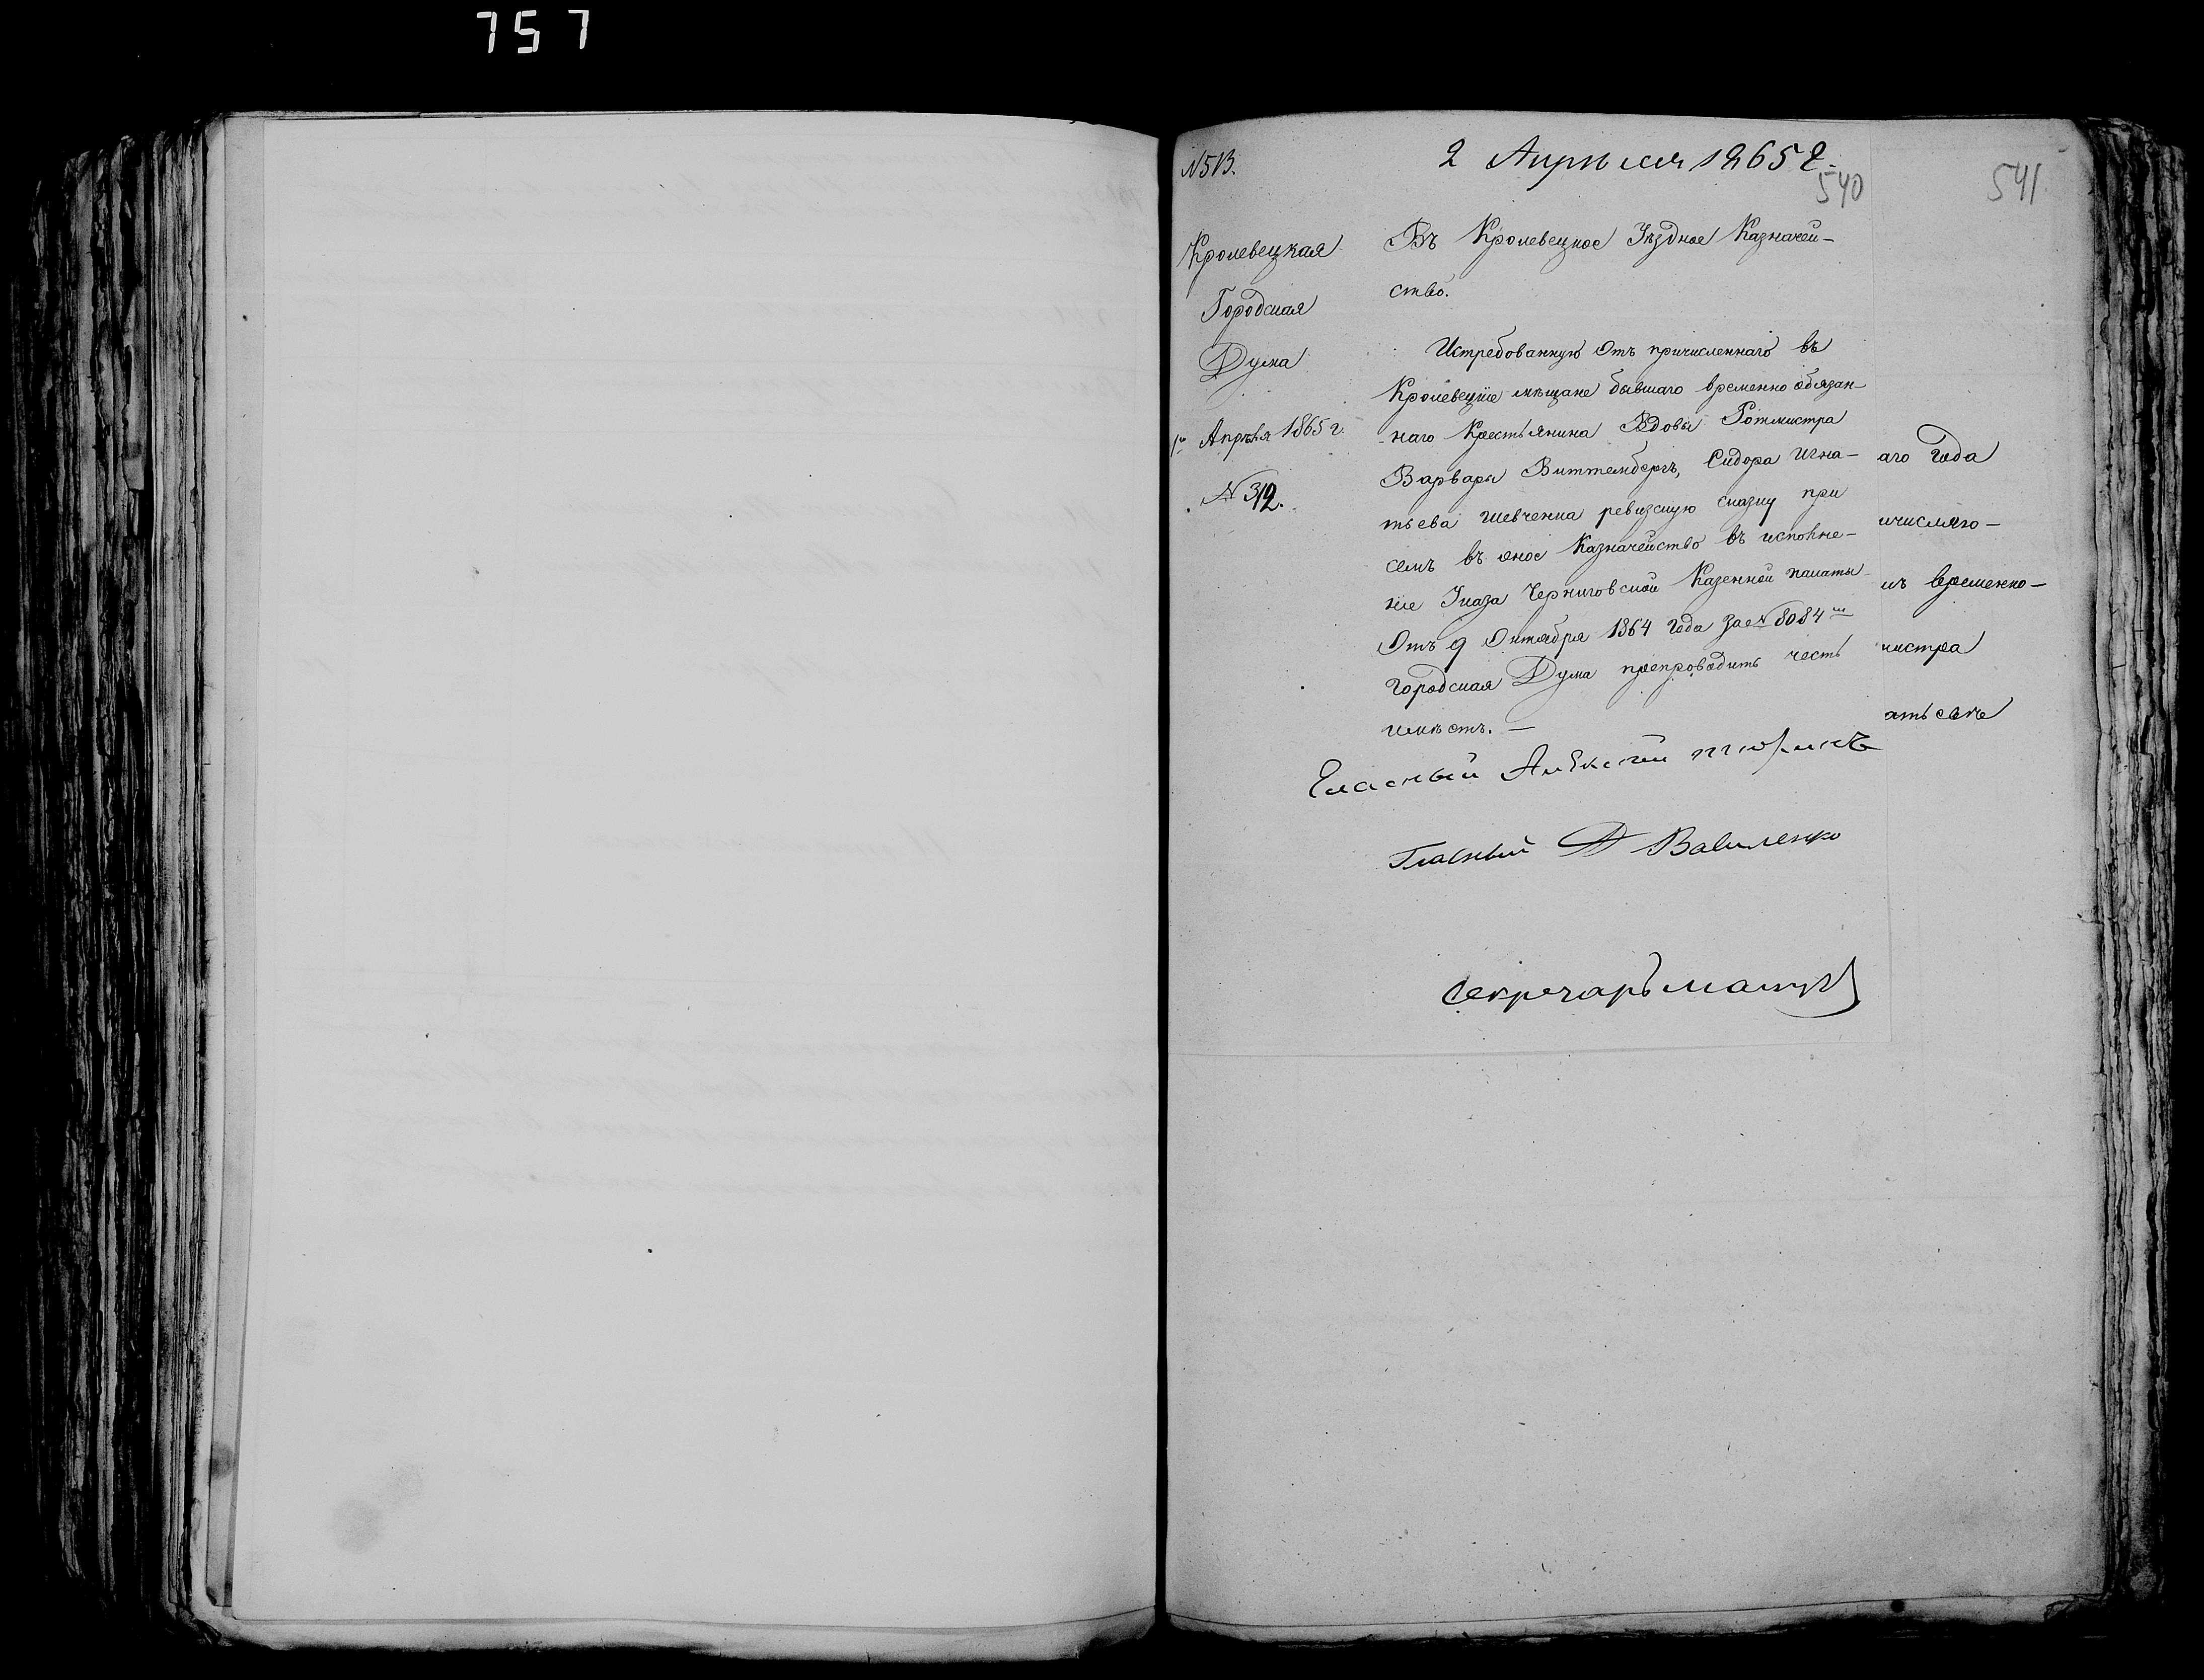 757
№ 513.
2 Апрѣля 1865 г.
540
541
Кролевецкая
Городская
Дума
1го Апрѣля 1865 г.
№ 312.
Въ Кролевецкое Уѣздное Казначей-
ство.
Истребованную отъ причисленнаго въ
Кролевецкіе мѣщане бывшаго временно обязан-
наго Крестьянина Вдовы Ротмистра
Варвары Виттембергъ, Сидора Игна-
тьева Шевченка ревизскую сказку при
семъ въ оное Казначейство въ исполне-
ніе Указа Черниговской Казенной палаты
Отъ 9 Октября 1864 года за № 8084
городская Дума препроводить честь
имѣетъ. —
Гласный Алексей
Гласный Д Вавиленко
Секретарь
аго Года
ичисляю-
хъ временно-
мистра